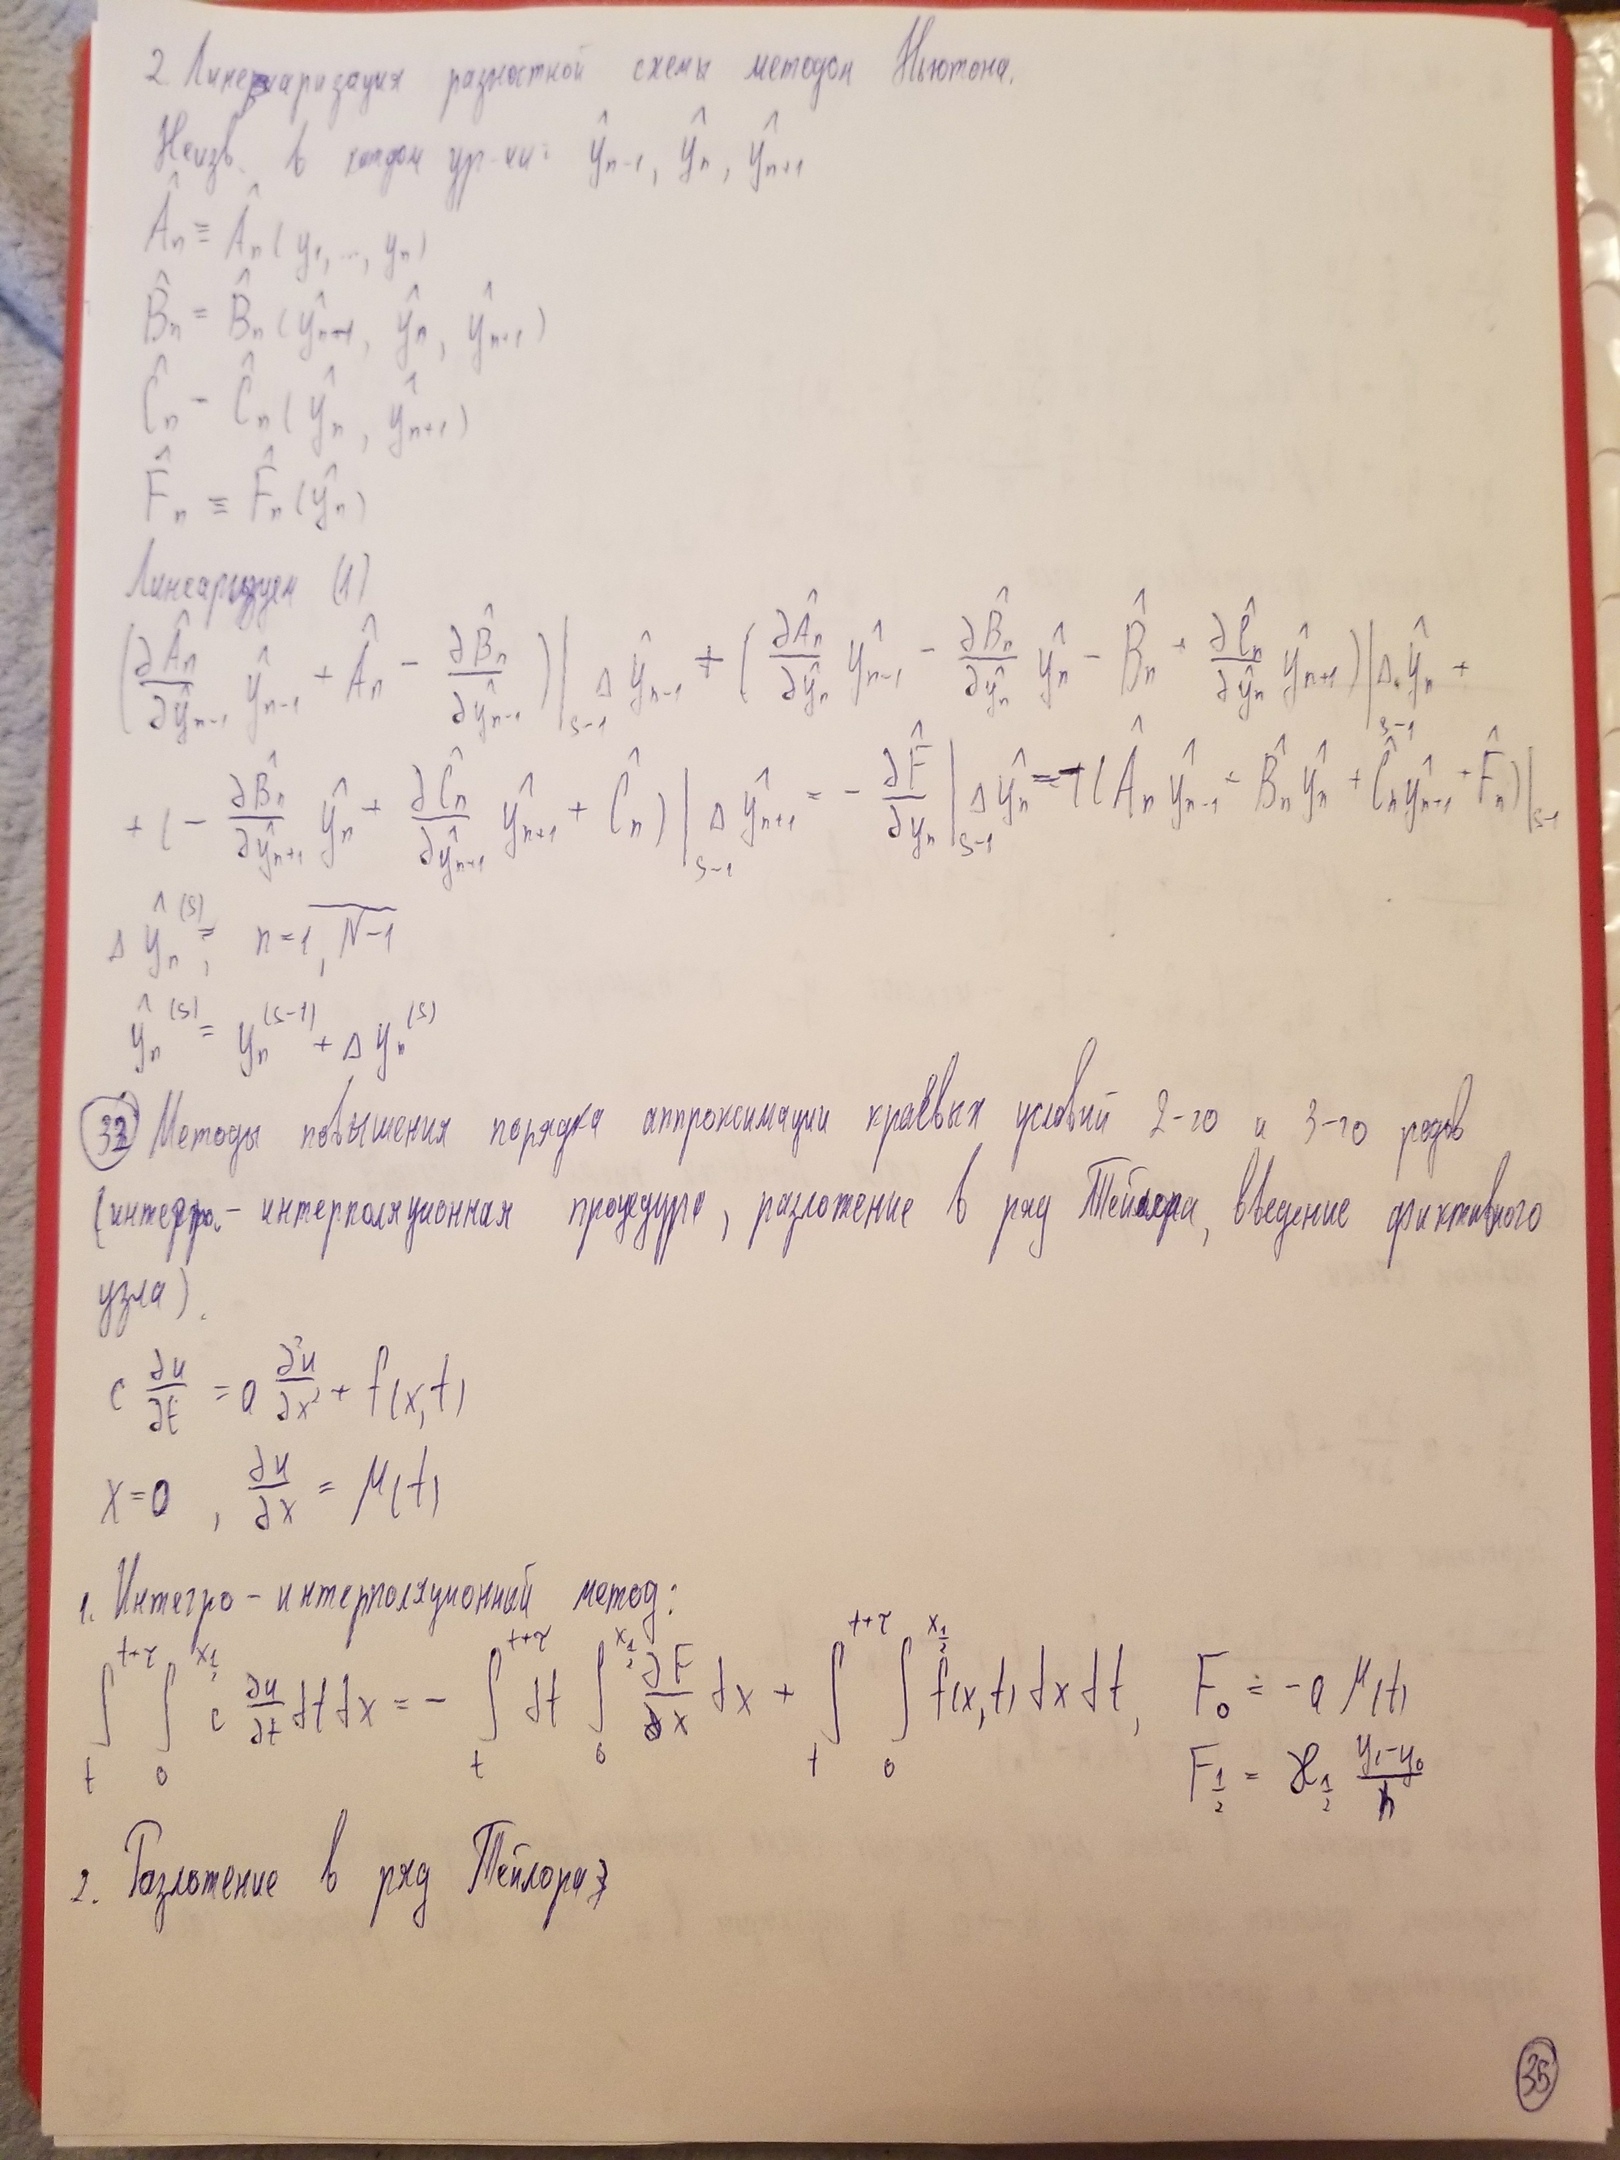 2. Линеаризация разностной схемы методом Ньютона.
Неизв. в каждом ур-ии: ŷₙ₋₁, ŷₙ, ŷₙ₊₁
Âₙ ≡ Âₙ(y₁, ..., yₙ)
B̂ₙ = B̂ₙ(ŷₙ₋₁, ŷₙ, ŷₙ₊₁)
Ĉₙ = Ĉₙ(ŷₙ, ŷₙ₊₁)
F̂ₙ ≡ F̂ₙ(ŷₙ)
Линеаризуем (1)
(∂Âₙ/∂ŷₙ₋₁ ŷₙ₋₁ + Âₙ − ∂B̂ₙ/∂ŷₙ₋₁)|ₛ₋₁ Δŷₙ₋₁ + (∂Âₙ/∂ŷₙ ŷₙ₋₁ − ∂B̂ₙ/∂ŷₙ ŷₙ − B̂ₙ + ∂Ĉₙ/∂ŷₙ ŷₙ₊₁)|ₛ₋₁ Δŷₙ +
+ (− ∂B̂ₙ/∂ŷₙ₊₁ ŷₙ + ∂Ĉₙ/∂ŷₙ₊₁ ŷₙ₊₁ + Ĉₙ)|ₛ₋₁ Δŷₙ₊₁ = − ∂F̂/∂yₙ|ₛ₋₁ Δŷₙ = −(Âₙ ŷₙ₋₁ − B̂ₙ ŷₙ + Ĉₙ ŷₙ₊₁ + F̂ₙ)|ₛ₋₁
Δŷₙ⁽ˢ⁾ =, n = 1, N−1
ŷₙ⁽ˢ⁾ = yₙ⁽ˢ⁻¹⁾ + Δyₙ⁽ˢ⁾
32 Методы повышения порядка аппроксимации краевых условий 2-го и 3-го родов
(интегро-интерполяционная процедура, разложение в ряд Тейлора, введение фиктивного
узла).
c ∂u/∂t = a ∂²u/∂x² + f(x,t)
x=0, ∂u/∂x = μ(t)
1. Интегро-интерполяционный метод:
∫ₜ^(t+τ) ∫₀^(x_{1/2}) c ∂u/∂t dt dx = − ∫ₜ^(t+τ) dt ∫₀^(x_{1/2}) ∂F/∂x dx + ∫ₜ^(t+τ) ∫₀^(x_{1/2}) f(x,t) dx dt, F₀ = −a μ(t)
F_{1/2} = ϰ_{1/2} (y₁−y₀)/h
2. Разложение в ряд Тейлора:
35